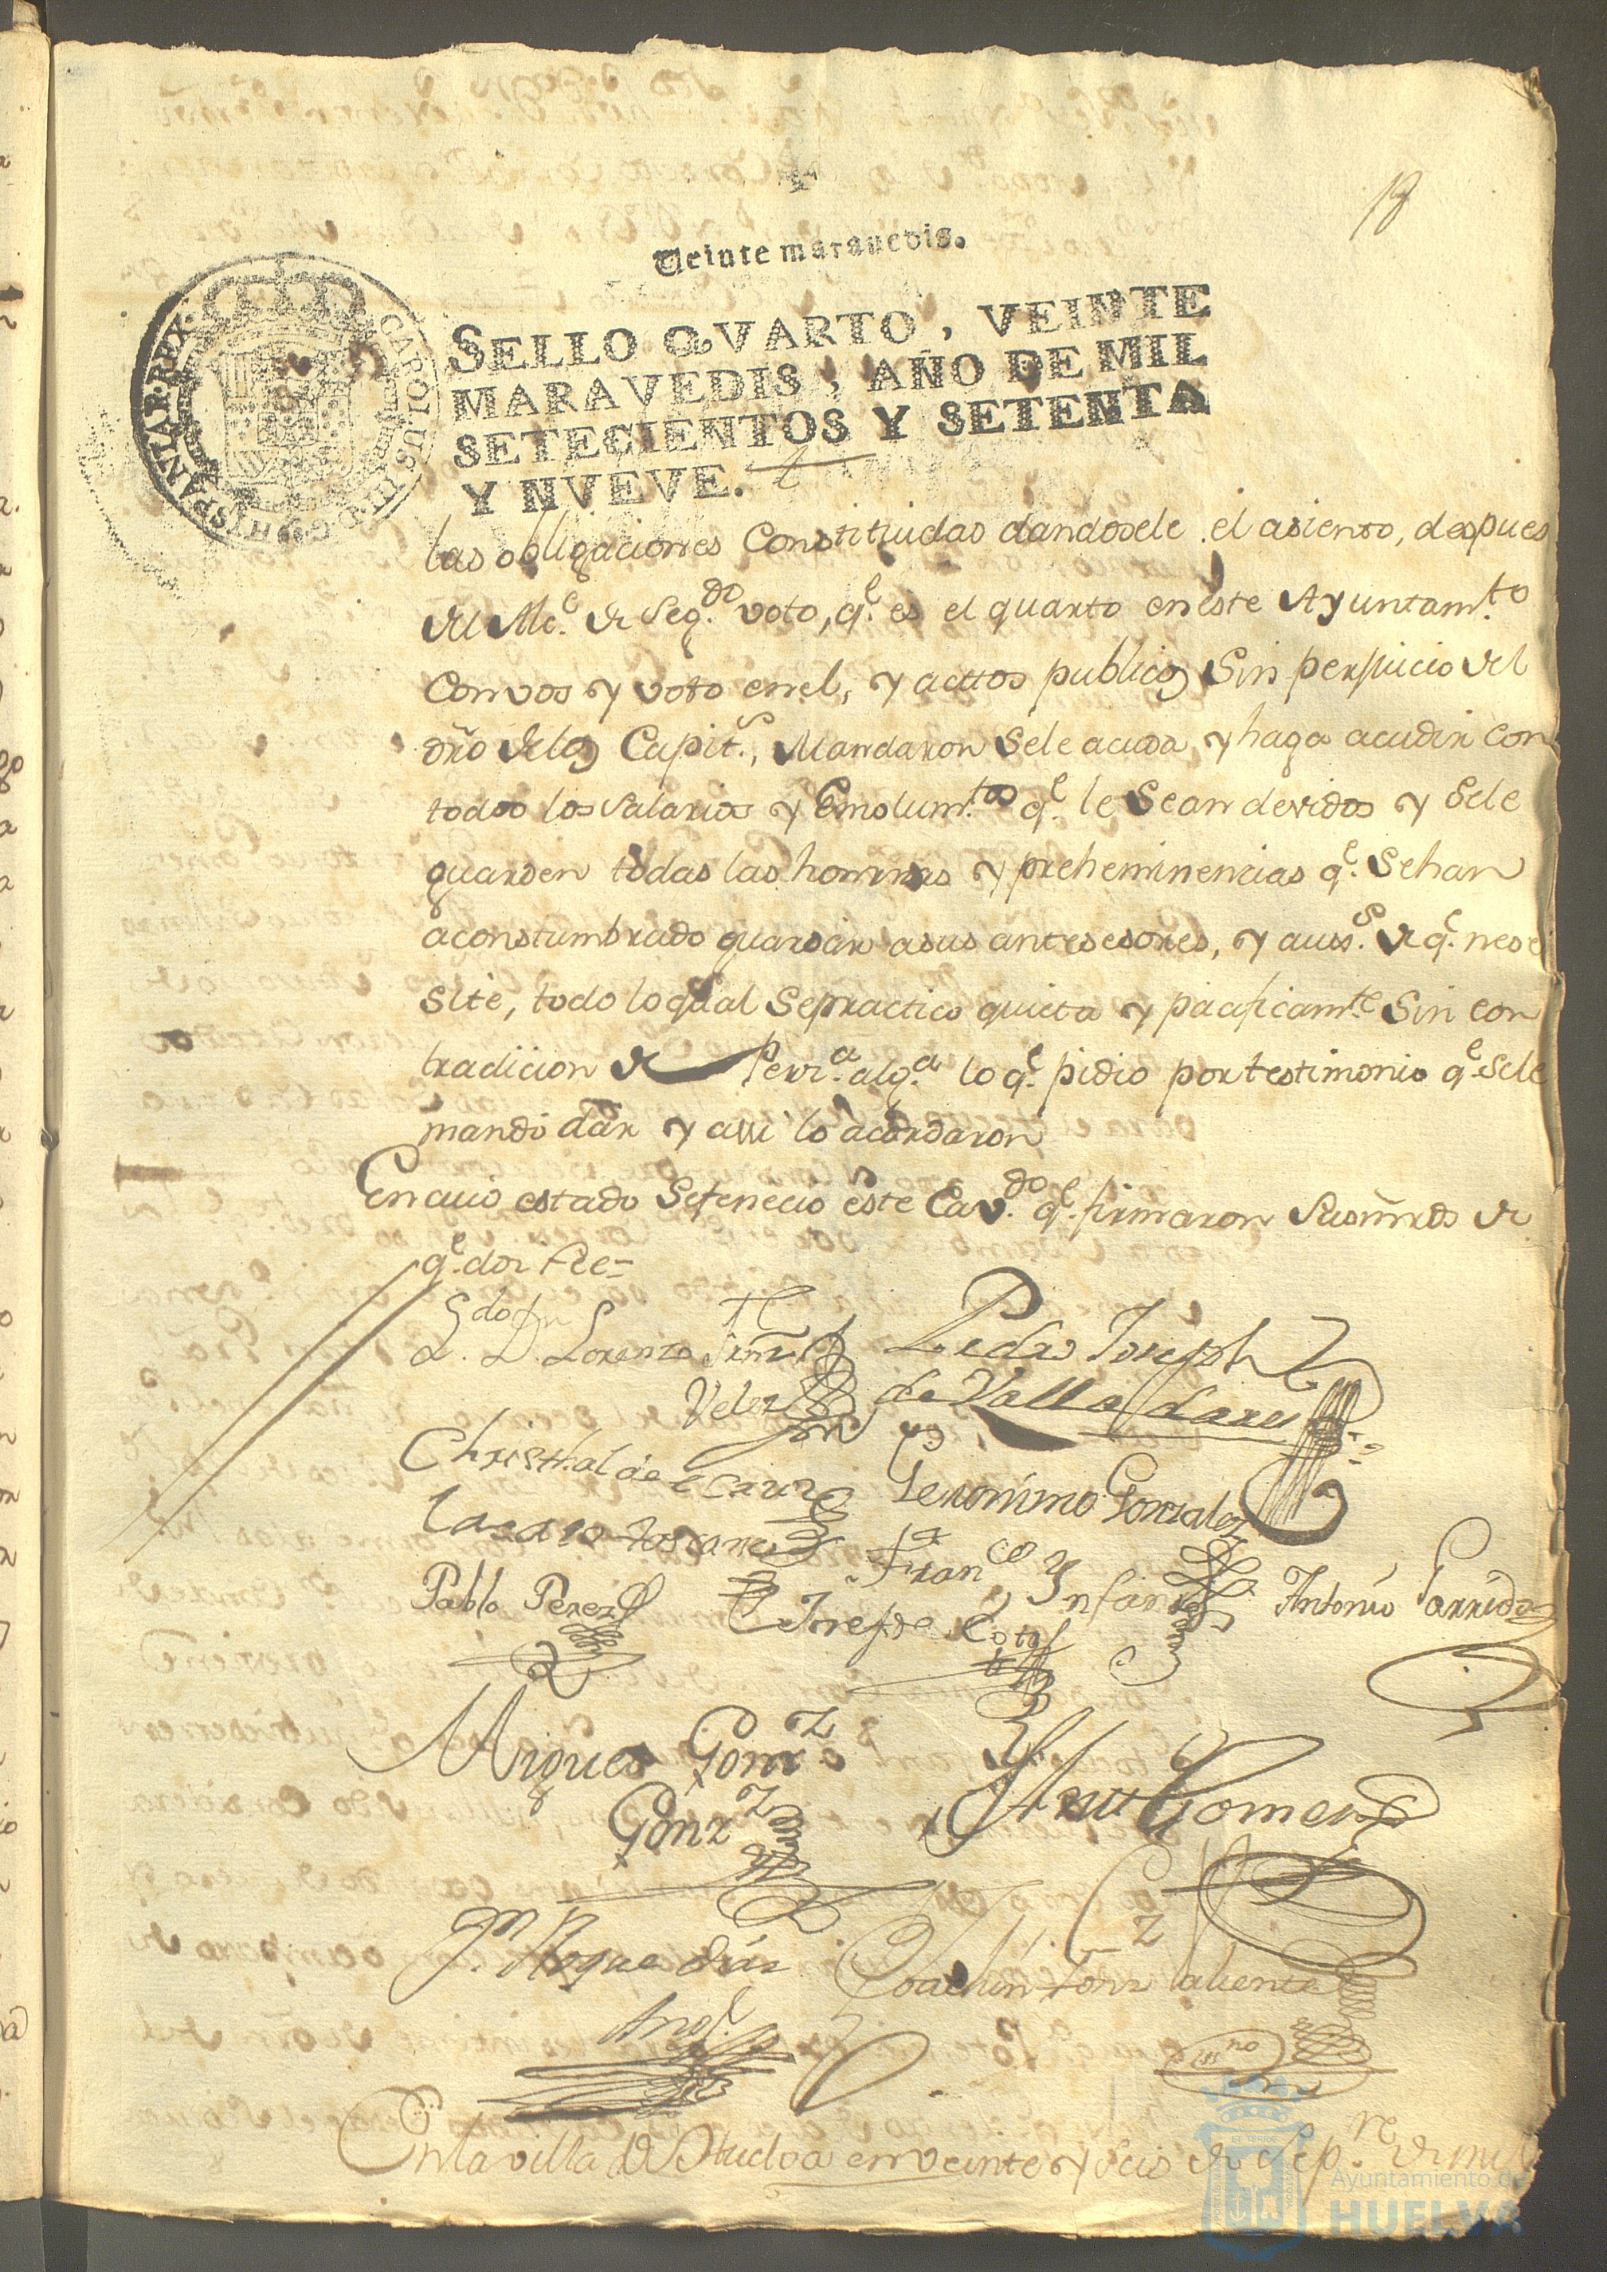 18
Veinte maravedis.
CAROLUS III D G HISPANIAR REX
SELLO QVARTO, VEINTE
MARAVEDIS, AÑO DE MIL
SETECIENTOS Y SETENTA
Y NVEVE.
las obligaciones Constituidas dandosele el asiento, despues
del Alc.e de Seg.do voto, q.e es el quarto en este Ayuntam.to
Con vos y voto en el, y actos publicos Sin perjuicio del
dro delos Capit.s, Mandaron Sele acuda, y haga acudir con
todos los Salarios y Emolum.tos q.e le Sean devidos y Sele
guarden todas las honrras y preheminencias q.e Sehan
acostumbrado guardar asus antesesores, y aus.s de q.e nese
site, todo lo qual Sepractico quieta y pacificam.te Sin con
tradicion de Perz.a alg.a lo q.e pidio por testimonio q.e Sele
mandó dar y assi lo acordaron
En cuio estado Sefenecio este Cav.do q.e firmaron Susmrds de
q.e doi Fee=
L.do D.n Lorenzo
Velez
Pedro Joseph
de Valladares
Christhal de
Geronimo Gonzalez
Lazaro Toscano
Fran.co Infante
Antonio Garrido
Pablo Perez
Josef de Coto
Miguel Gonz.z
Gonz.z
Gomez
J.n Roque Dias
Joachin Gonz.z Valiente
Ess.no
En la villa de Huelva en veinte y seis de Sep.re de mil
Ayuntamiento de
HUELVA